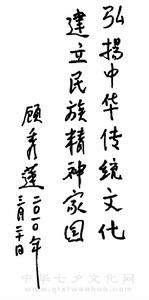 弘揚中华传统文化
建立民族精神家园
顾秀莲
二〇一〇年
三月二十日
中华七夕文化网
www.qixiwenhua.com